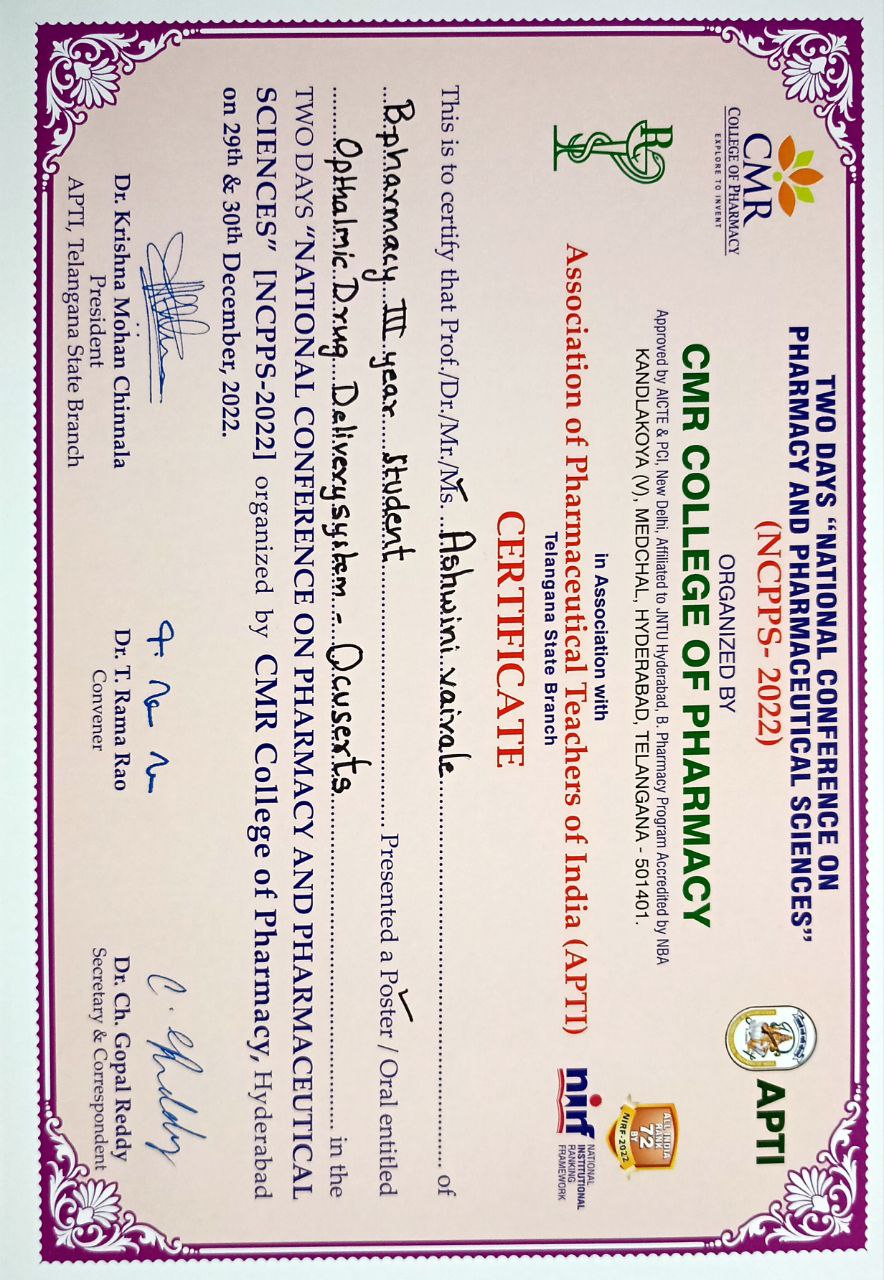 CMR
COLLEGE OF PHARMACY
EXPLORE TO INVENT
TWO DAYS “NATIONAL CONFERENCE ON
PHARMACY AND PHARMACEUTICAL SCIENCES”
(NCPPS- 2022)
APTI
ORGANIZED BY
CMR COLLEGE OF PHARMACY
Approved by AICTE & PCI, New Delhi, Affiliated to JNTU Hyderabad, B. Pharmacy Program Accredited by NBA
KANDLAKOYA (V), MEDCHAL, HYDERABAD, TELANGANA - 501401.
R
ALL INDIA
RANK
72
BY
NIRF-2022
nirf
NATIONAL
INSTITUTIONAL
RANKING
FRAMEWORK
in Association with
Association of Pharmaceutical Teachers of India (APTI)
Telangana State Branch
CERTIFICATE
This is to certify that Prof./Dr./Mr./Ms. Ashwini vaivale of
B-pharmacy III year student Presented a Poster / Oral entitled
Opthalmic Drug Delivery system - Ocuserts in the
TWO DAYS “NATIONAL CONFERENCE ON PHARMACY AND PHARMACEUTICAL
SCIENCES” [NCPPS-2022] organized by CMR College of Pharmacy, Hyderabad
on 29th & 30th December, 2022.
C. Reddy
Dr. Krishna Mohan Chinnala
President
APTI, Telangana State Branch
Dr. T. Rama Rao
Convener
Dr. Ch. Gopal Reddy
Secretary & Correspondent